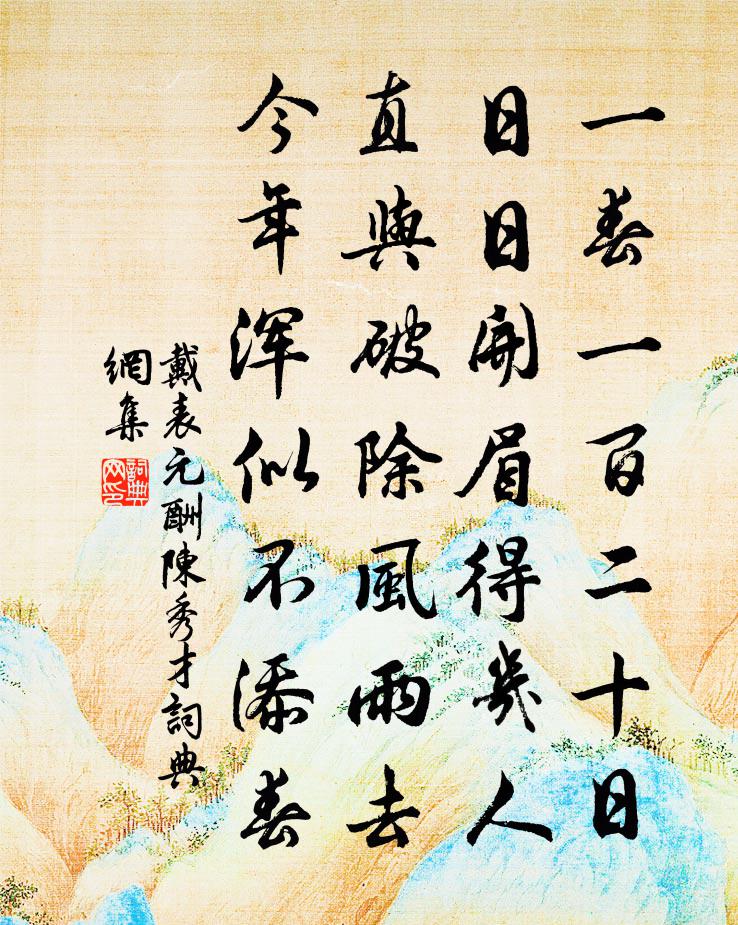 一春一百二十日
日日開眉得幾人
直與破除風雨去
今年渾似不添春
戴表元酬陳秀才詞典
網集
詞典
网印